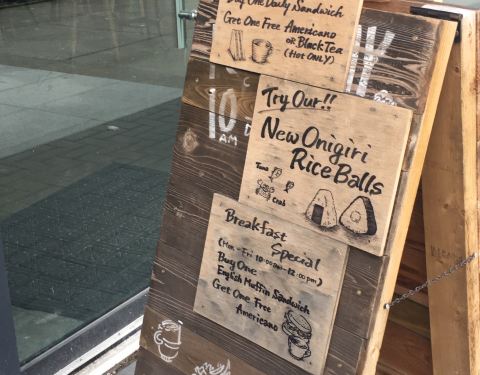 Buy One Daily Sandwich
Get One Free Americano
or Black Tea
(Hot ONLY)
10
AM
Try Our!!
New Onigiri
Rice Balls
Tuna
Crab
Breakfast
Special
(Mon-Fri 10:00am-12:00pm)
Buy One
English Muffin Sandwich
Get One Free
Americano